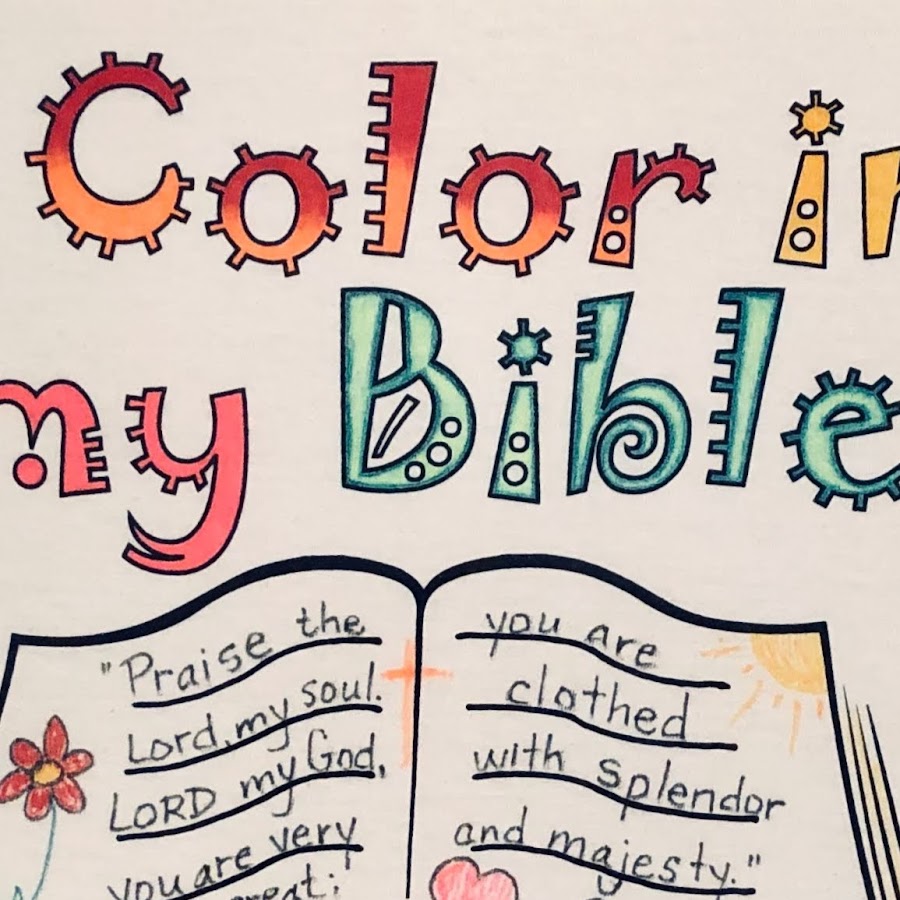 Color in
my Bible
"Praise the
Lord, my soul.
LORD my God,
you are very
great;
you are
clothed
with splendor
and majesty."